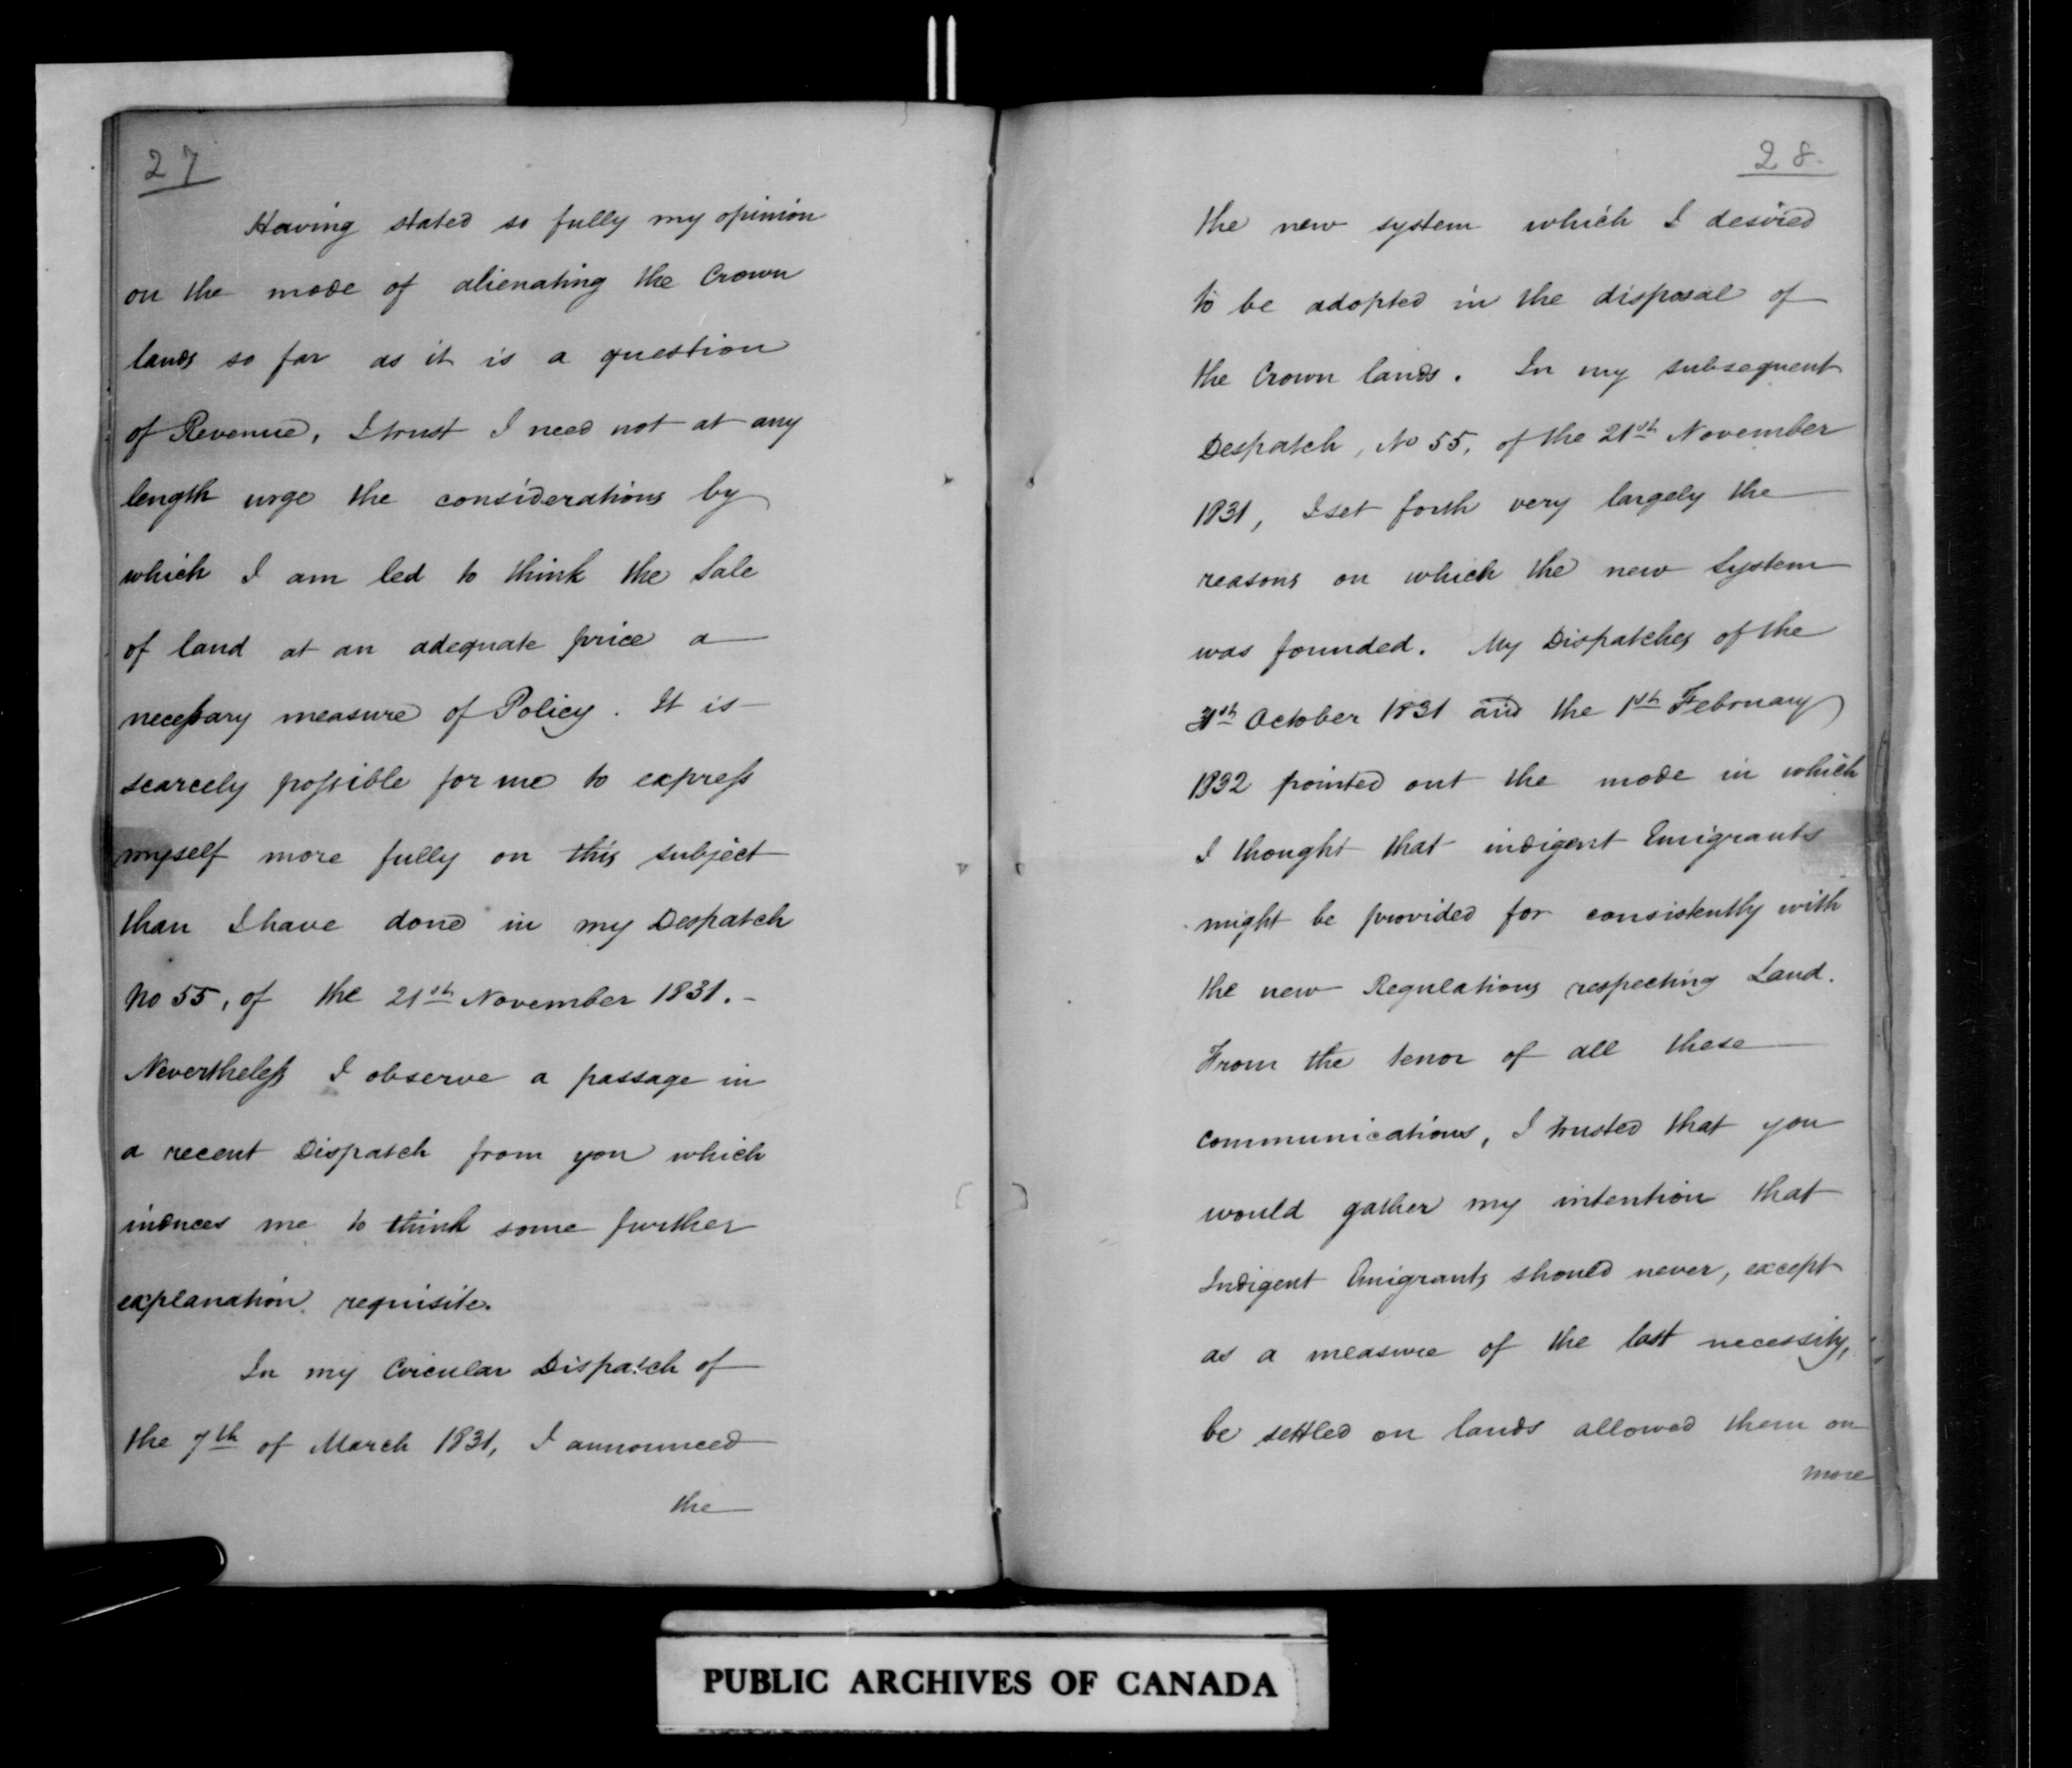 27
Having stated so fully my opinion
on the mode of alienating the Crown
lands so far as it is a question
of Revenue, I trust I need not at any
length urge the considerations by
which I am led to think the Sale
of land at an adequate price a
necessary measure of Policy. It is
scarcely possible for me to express
myself more fully on this subject
than I have done in my Despatch
No 55, of the 21st November 1831. -
Nevertheless I observe a passage in
a recent Dispatch from you which
induces me to think some further
explanation requisite.
In my Circular Dispatch of
the 7th of March 1831, I announced
the
28.
the new system which I desired
to be adopted in the disposal of
the Crown lands. In my subsequent
Despatch, No 55, of the 21st November
1831, I set forth very largely the
reasons on which the new System
was founded. My Dispatches of the
October 1831 and the 1st February
1832 pointed out the mode in which
I thought that indigent Emigrants
might be provided for consistently with
the new Regulations respecting Land.
From the tenor of all these
communications, I trusted that you
would gather my intention that
Indigent Emigrants should never, except
as a measure of the last necessity,
be settled on lands allowed them on
more
PUBLIC ARCHIVES OF CANADA